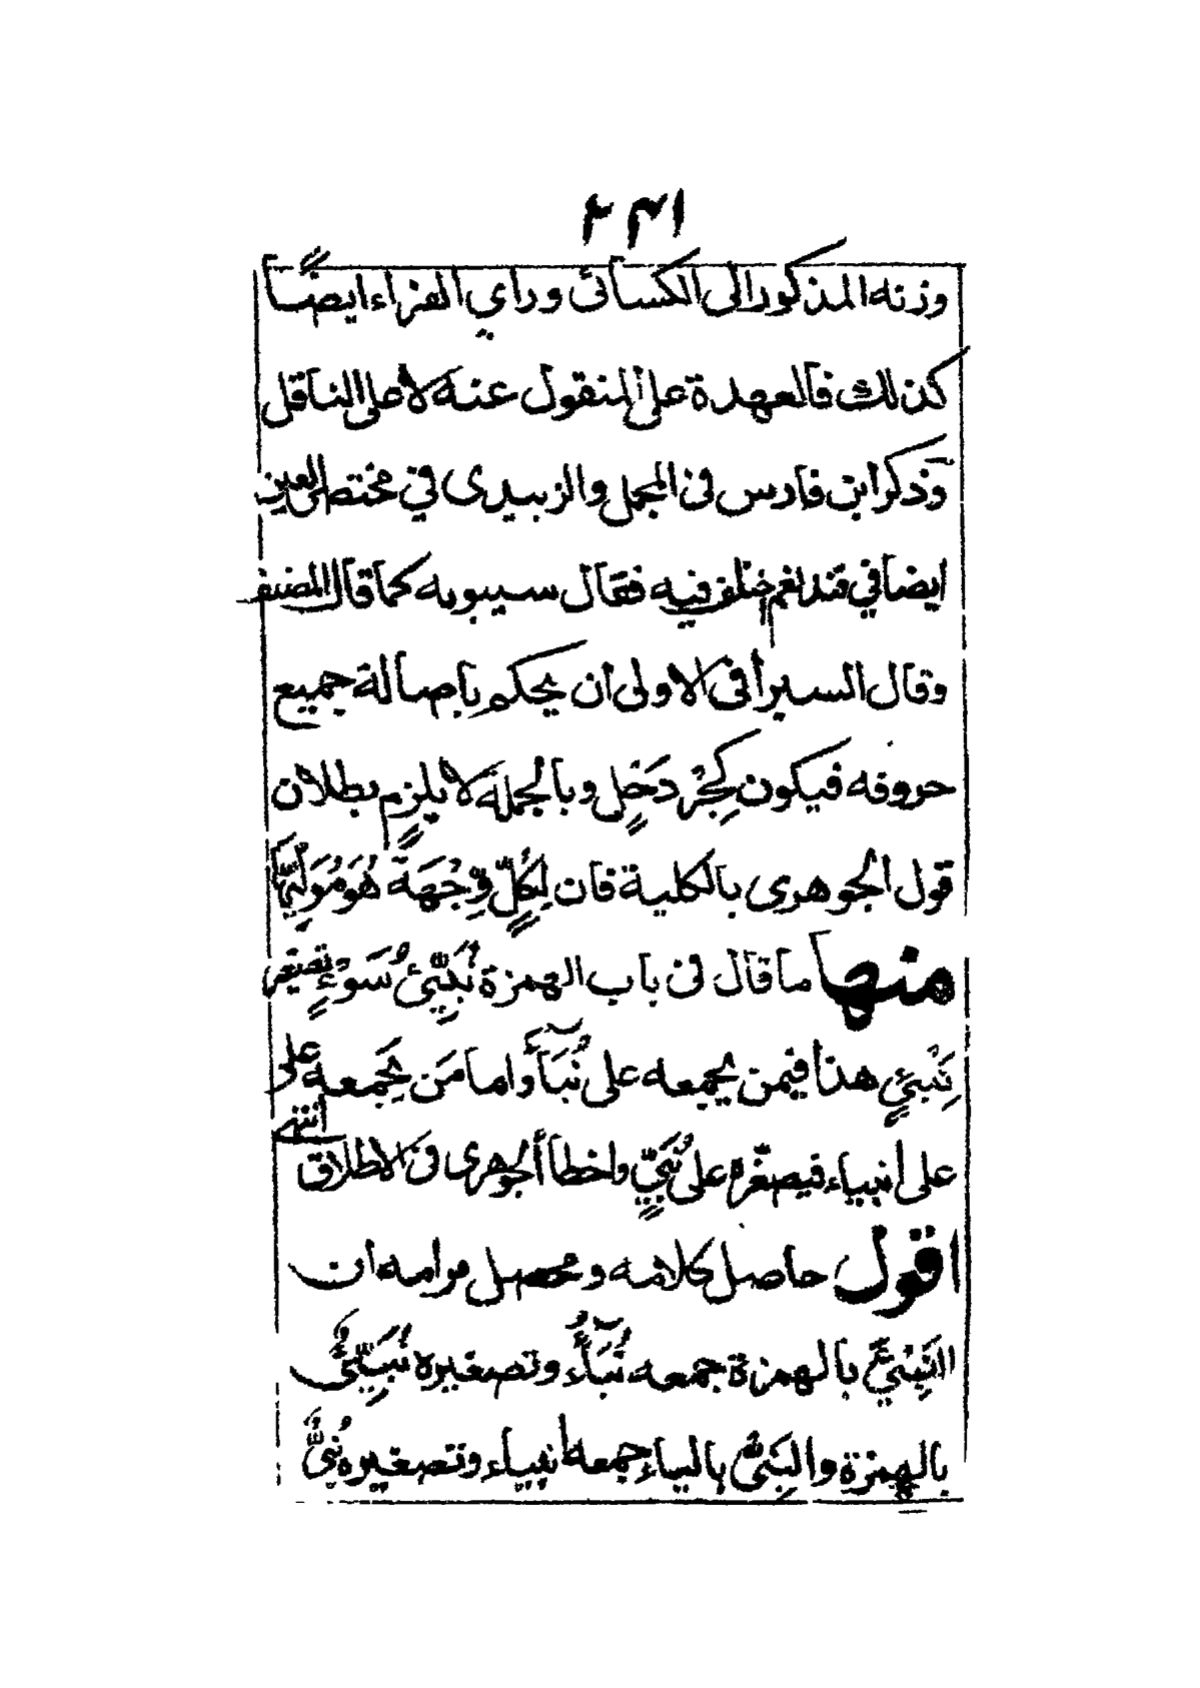 وزنه المذكور الى الكسائى وراي الفراء ايضًا
كذلك فالعهدة على المنقول عنه لا على الناقل
وذكر ابن فارس فى المجمل والزبيدى في مختصر العين
ايضا في قندا نعم اختلف فيه فقال سيبويه كما قال المصنف
وقال السيرافى الاولى ان يحكم باصالة جميع
حروفه فيكون كجِرْدَحْلٍ وبالجملة لا يلزم بطلان
قول الجوهرى بالكلية فان لِكُلٍّ وِّجْهَةٌ هُوَ مُوَلِّيْهَا
منها ما قال فى باب الهمزة نُبَيِّئُ سَوْءٍ تصغير
نَبْئٍ هذا فيمن يجمعه على نُبَآءَ واما من يَجمعه على
على أنبياء فيصغّره على نُبَيٍّ واخطأ الجوهرى فى الاطلاق انتهى
اقول حاصل كلامه ومحصل مرامه ان
النَّبِئَ بالهمزة جمعه نُبَآءُ وتصغيره نُبَيِّئٌ
بالهمزة والنَبِىُّ بالياء جمعه انبياء وتصغيره نُبَىٌّ